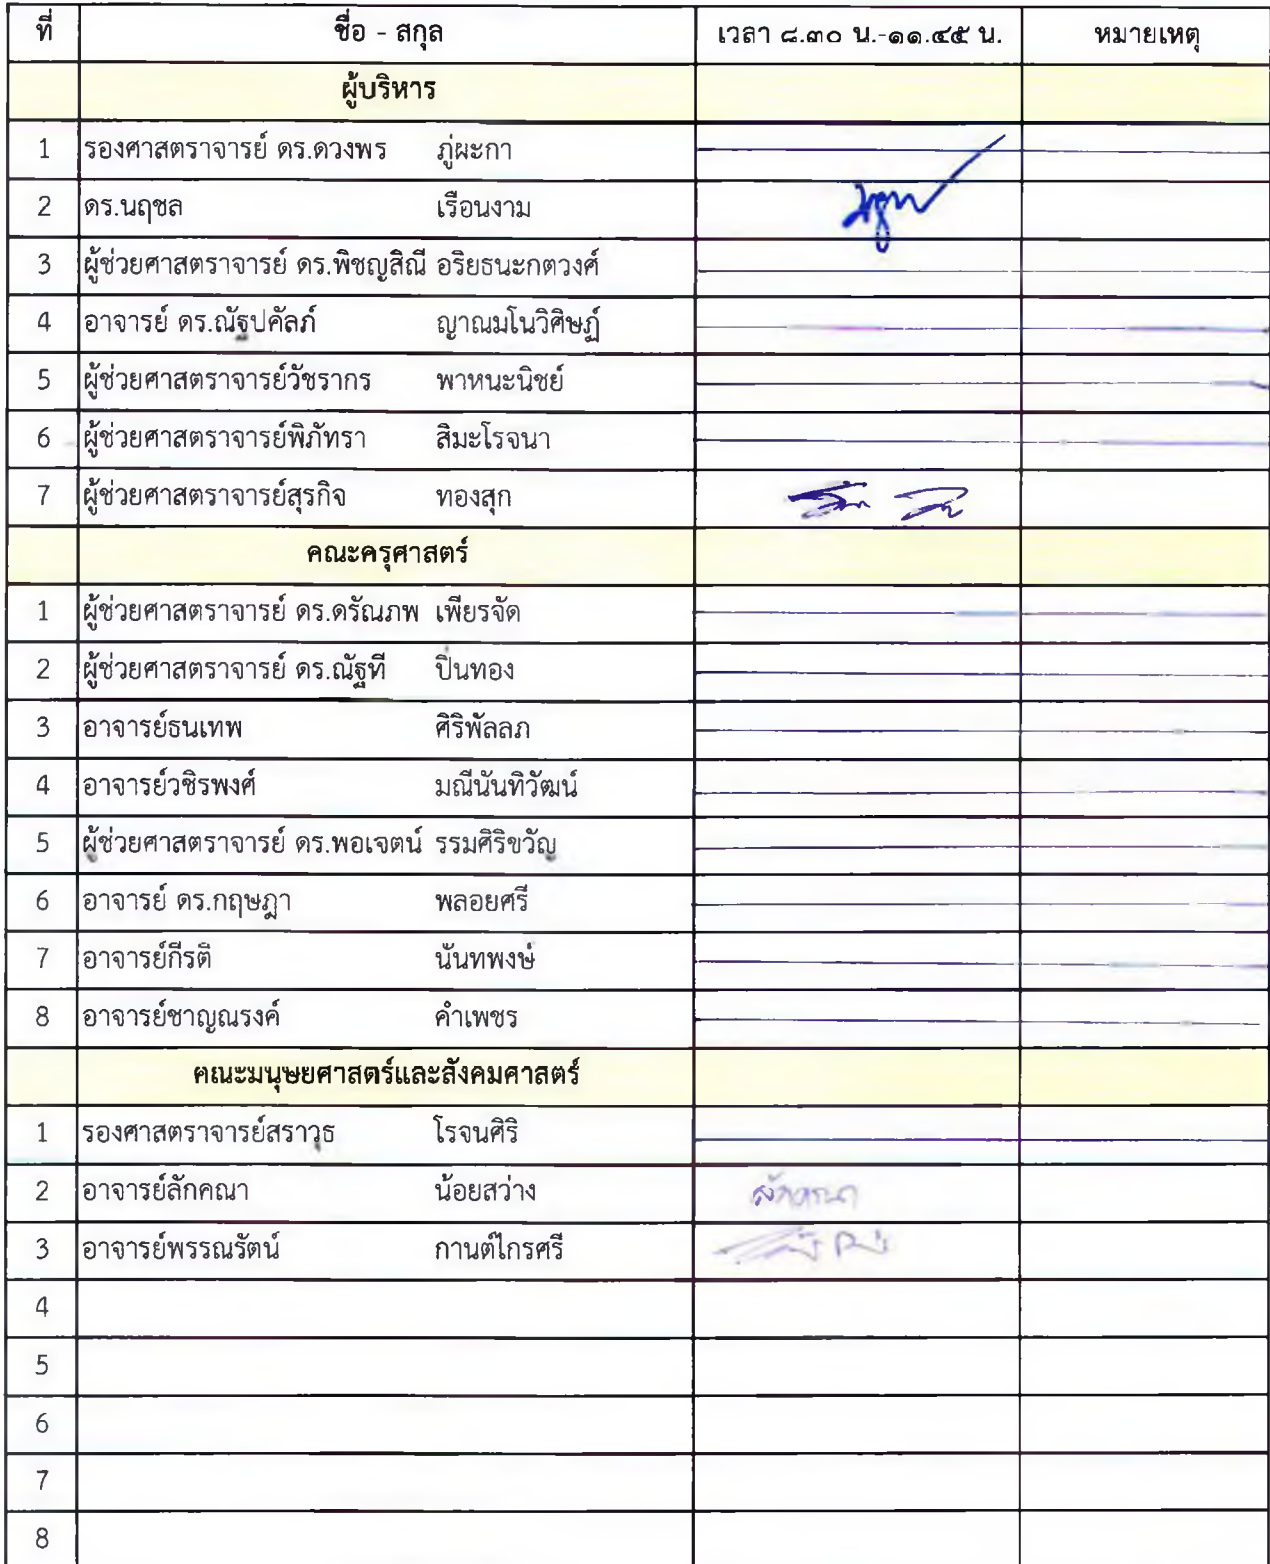 ที่ ชื่อ - สกุล เวลา ๘.๓๐ น.-๑๑.๔๕ น. หมายเหตุ
ผู้บริหาร
1 รองศาสตราจารย์ ดร.ดวงพร ภู่ผะกา
2 ดร.นฤชล เรือนงาม
3 ผู้ช่วยศาสตราจารย์ ดร.พิชญสิณี อริยธนะกตวงศ์
4 อาจารย์ ดร.ณัฐปคัลภ์ ญาณมโนวิศิษฏ์
5 ผู้ช่วยศาสตราจารย์วัชรากร พาหนะนิชย์
6 ผู้ช่วยศาสตราจารย์พิภัทรา สิมะโรจนา
7 ผู้ช่วยศาสตราจารย์สุรกิจ ทองสุก
คณะครุศาสตร์
1 ผู้ช่วยศาสตราจารย์ ดร.ดรัณภพ เพียรจัด
2 ผู้ช่วยศาสตราจารย์ ดร.ณัฐที ปิ่นทอง
3 อาจารย์ธนเทพ ศิริพัลลภ
4 อาจารย์วชิรพงศ์ มณีนันทิวัฒน์
5 ผู้ช่วยศาสตราจารย์ ดร.พอเจตน์ รรมศิริขวัญ
6 อาจารย์ ดร.กฤษฎา พลอยศรี
7 อาจารย์กีรติ นันทพงษ์
8 อาจารย์ชาญณรงค์ คำเพชร
คณะมนุษยศาสตร์และสังคมศาสตร์
1 รองศาสตราจารย์สราวุธ โรจนศิริ
2 อาจารย์ลักคณา น้อยสว่าง ลักคณา
3 อาจารย์พรรณรัตน์ กานต์ไกรศรี
4
5
6
7
8